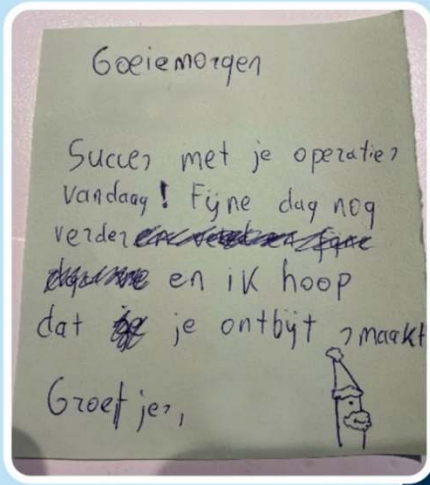 Goeiemorgen
Succes met je operaties
vandaag! Fijne dag nog
verder
en ik hoop
dat je ontbijt smaakt
Groetjes,